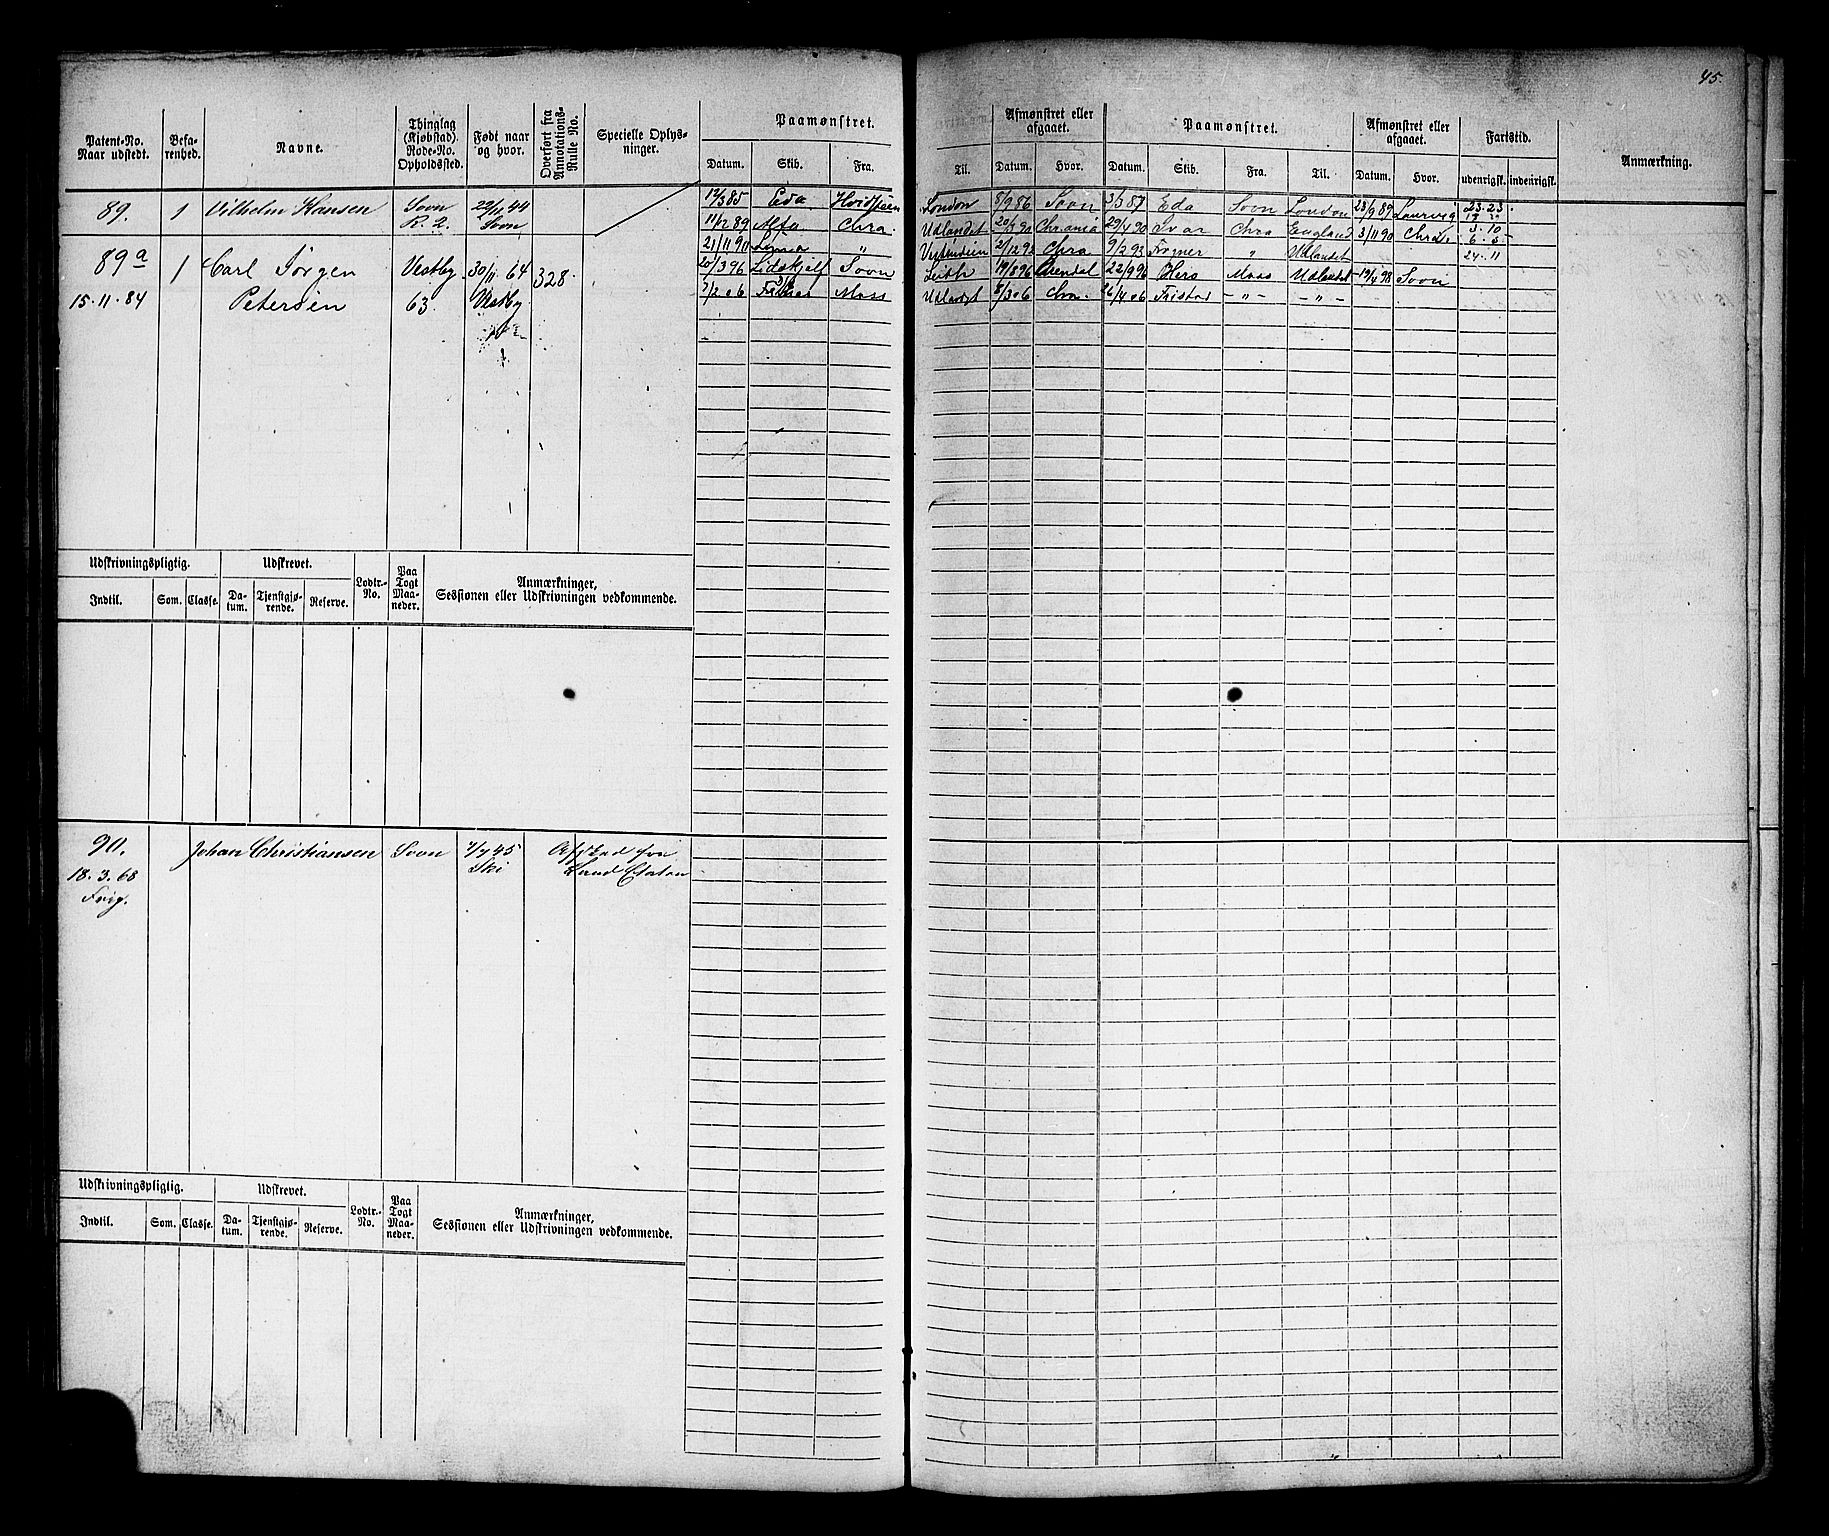 45.
Patent-No. Naar udstedt. Befarenhed. Navne. Thinglag (Kjøbstad). Rode-No. Opholdssted. Født naar og hvor. Overført fra Annotations-Rulle No. Specielle Oplysninger. Paamønstret. Datum. Skib. Fra.
Til. Afmønstret eller afgaaet. Datum. Hvor. Paamønstret. Datum. Skib. Fra. Til. Afmønstret eller afgaaet. Datum. Hvor. Fartstid. udenrigsk. indenrigsk. Anmærkning.
89. 1 Vilhelm Hansen Sovn R. 2. 22/11 44 Sovn
12/3 85 Eda London 8/9 86 Sovn Eda Sovn London 28/9 89 Laurvig 23. 23.
11/2 89 Alfa Chra. Udlandet 20/3 90 Chrania 29/4 90 Svar Chra England 3/11 90 Chra. 3. 10
21/11 90 " 2/12 92 Chra 9/2 93 " Udlandet 6. 5
89a 1 Carl Jørgen Petersen Vestby 63. 30/11 64 Vestby 328.
20/3 96 Lidskjelf Sovn Leith 19/8 96 Arendal 22/9 96 Hero Moss Udlandet 19/4 98 Sovn 24. 11
15. 11. 84
7/2 06 Moss Udlandet 8/3 06 Chra. 26/4 06 - " - - " -
Udskrivningspligtig. Udskrevet. Lodtr.-No. Paa Togt Maaneder. Anmærkninger, Sessionen eller Udskrivningen vedkommende.
Indtil. Som. Classe. Datum. Tjenstgjørende. Reserve.
90. Johan Christiansen Sovn 7/7 45 Ski Afskед fra
18. 3. 68 Land Etaten
Frig.
Udskrivningspligtig. Udskrevet. Lodtr.-No. Paa Togt Maaneder. Anmærkninger, Sessionen eller Udskrivningen vedkommende.
Indtil. Som. Classe. Datum. Tjenstgjørende. Reserve.